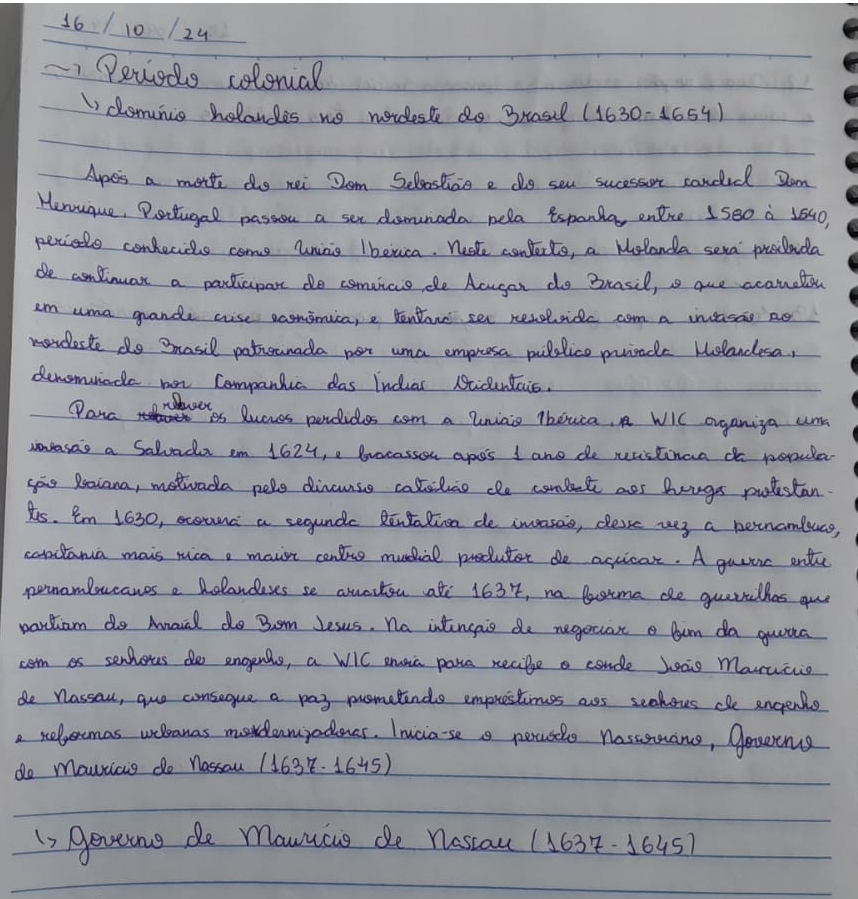 16 / 10 / 24
~> Período colonial
↳ domínio holandês no nordeste do Brasil (1630-1654)
Após a morte do rei Dom Sebastião e do seu sucessor cardeal Dom
Henrique, Portugal passou a ser dominada pela Espanha, entre 1580 à 1640,
período conhecido como União Ibérica. Neste contexto, a Holanda será proibida
de continuar a participar do comércio de Açucar do Brasil, o que acarretou
em uma grande crise econômica, e tentará ser resolvida com a invasão ao
nordeste do Brasil patrocinada por uma empresa público privada Holandesa,
denominada por Companhia das Índias Ocidentais.
Para reaver os lucros perdidos com a União Ibérica, a WIC organiza uma
invasão a Salvador em 1624, e fracassou após 1 ano de resistência da popula-
ção baiana, motivada pelo discurso católico de combate aos hereges protestan-
tes. Em 1630, ocorrerá a segunda tentativa de invasão, dessa vez a pernambuco,
capitania mais rica e maior centro mundial produtor de açúcar. A guerra entre
pernambucanos e holandeses se arrastou até 1637, na forma de guerrilhas que
partiam do Arraial do Bom Jesus. Na intenção de negociar o fim da guerra
com os senhores de engenho, a WIC envia para recife o conde João Maurício
de Nassau, que consegue a paz prometendo empréstimos aos senhores de engenho
e reformas urbanas modernizadoras. Inicia-se o período Nassoviano, Governo
de Maurício de Nassau (1637-1645)
↳ Governo de Maurício de Nassau (1637-1645)